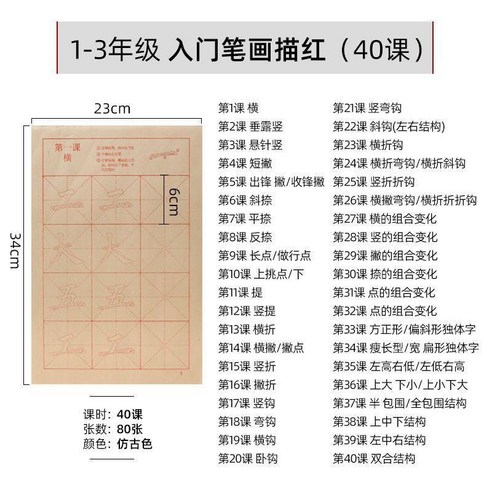 1-3年级 入门笔画描红（40课）
23cm
34cm
6cm
第一课
横
二二
大大
五五
工工
课时：40课
张数：80张
颜色：仿古色
第1课 横
第2课 垂露竖
第3课 悬针竖
第4课 短撇
第5课 出锋 撇/收锋撇
第6课 斜捺
第7课 平捺
第8课 反捺
第9课 长点/做行点
第10课 上挑点/下
第11课 提
第12课 竖提
第13课 横折
第14课 横撇/撇点
第15课 竖折
第16课 撇折
第17课 竖钩
第18课 弯钩
第19课 横钩
第20课 卧钩
第21课 竖弯钩
第22课 斜钩(左右结构)
第23课 横折钩
第24课 横折弯钩/横折斜钩
第25课 竖折折钩
第26课 横撇弯钩/横折折折钩
第27课 横的组合变化
第28课 竖的组合变化
第29课 撇的组合变化
第30课 捺的组合变化
第31课 点的组合变化
第32课 点的组合变化
第33课 方正形/偏斜形独体字
第34课 瘦长型/宽 扁形独体字
第35课 左高右低/左低右高
第36课 上大 下小/上小下大
第37课 半 包围/全包围结构
第38课 上中下结构
第39课 左中右结构
第40课 双合结构